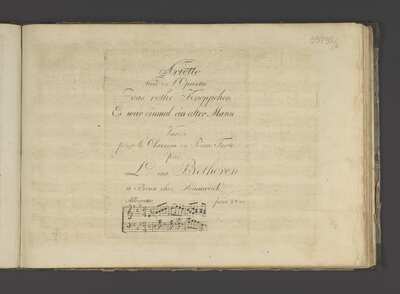 Ariette
tirée de l'Operette
Das rothe Kaeppchen
Es war einmal ein alter Mann
Variée
pour le Clavecin ou Piano Forte
par
L. van Bethoven
a Bonn chez Simmrock
Allegretto